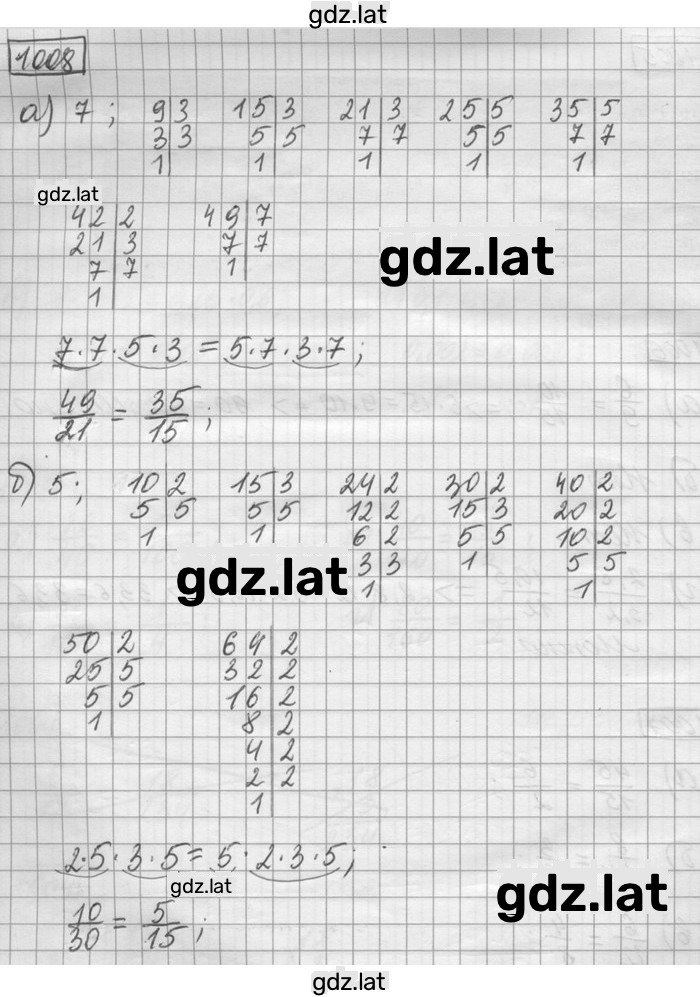 gdz.lat
1008
а) 7; 9|3 15|3 21|3 25|5 35|5
3|3 5|5 7|7 5|5 7|7
1| 1| 1| 1| 1|
gdz.lat
42|2 49|7
21|3 7|7
7|7 1|
1|
gdz.lat
7·7·5·3 = 5·7·3·7;
49/21 = 35/15;
б) 5; 10|2 15|3 24|2 30|2 40|2
5|5 5|5 12|2 15|3 20|2
1| 1| 6|2 5|5 10|2
3|3 1| 5|5
1| 1|
gdz.lat
50|2 64|2
25|5 32|2
5|5 16|2
1| 8|2
4|2
2|2
1|
2·5·3·5 = 5·2·3·5;
gdz.lat
gdz.lat
10/30 = 5/15;
gdz.lat